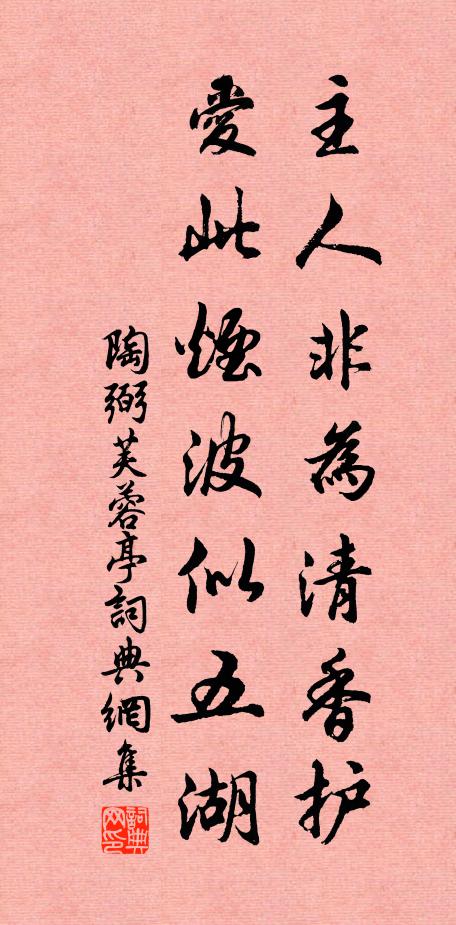 主人非為清香护
愛此煙波似五湖
陶弼芙蓉亭詞典網集
詞典网印